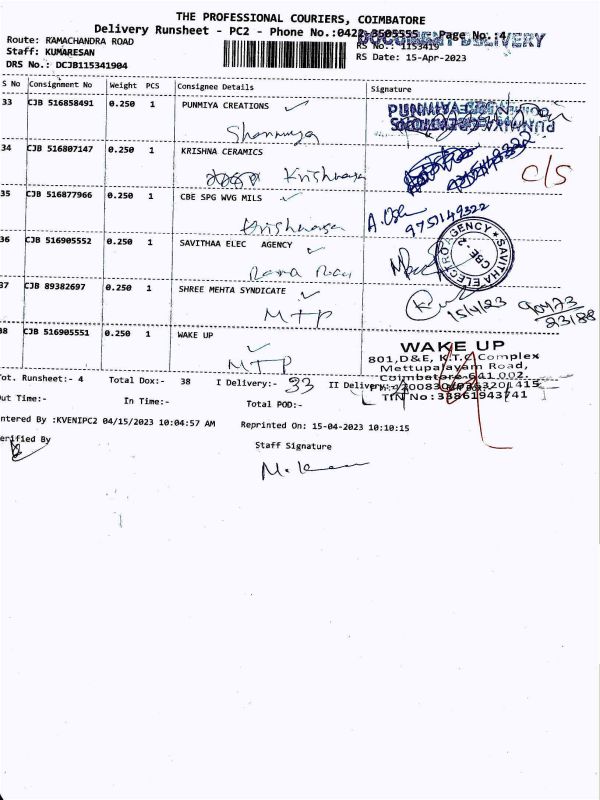 THE PROFESSIONAL COURIERS, COIMBATORE
Delivery Runsheet - PC2 - Phone No.:0422-3505555 Page No.:4/
DOCUMENT DELIVERY
Route: RAMACHANDRA ROAD
RS No.: 1153419
Staff: KUMARESAN
RS Date: 15-Apr-2023
DRS No.: DCJB115341904
S No Consignment No Weight PCS Consignee Details Signature
33 CJB 516858491 0.250 1 PUNMIYA CREATIONS
34 CJB 516807147 0.250 1 KRISHNA CERAMICS
C/S
35 CJB 516877966 0.250 1 CBE SPG WVG MILS
9751149322
36 CJB 516905552 0.250 1 SAVITHAA ELEC AGENCY
SAVITHA ELECTRO AGENCY
CBE - 2
37 CJB 89382697 0.250 1 SHREE MEHTA SYNDICATE
MTP
15/4/23
38 CJB 516905551 0.250 1 WAKE UP
MTP
WAKE UP
801,D&E, K.T.C Complex
Mettupalayam Road,
Coimbatore-641 002.
TIN No:33861943741
Tot. Runsheet:- 4 Total Dox:- 38 I Delivery:- 33 II Delivery:-
Out Time:- In Time:- Total POD:-
ntered By :KVENIPC2 04/15/2023 10:04:57 AM Reprinted On: 15-04-2023 10:10:15
erified By
Staff Signature